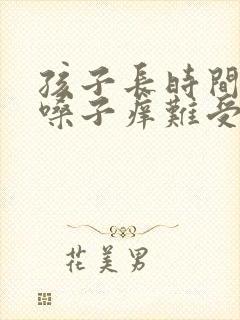 孩子長時間
嗓子癢難受
花美男